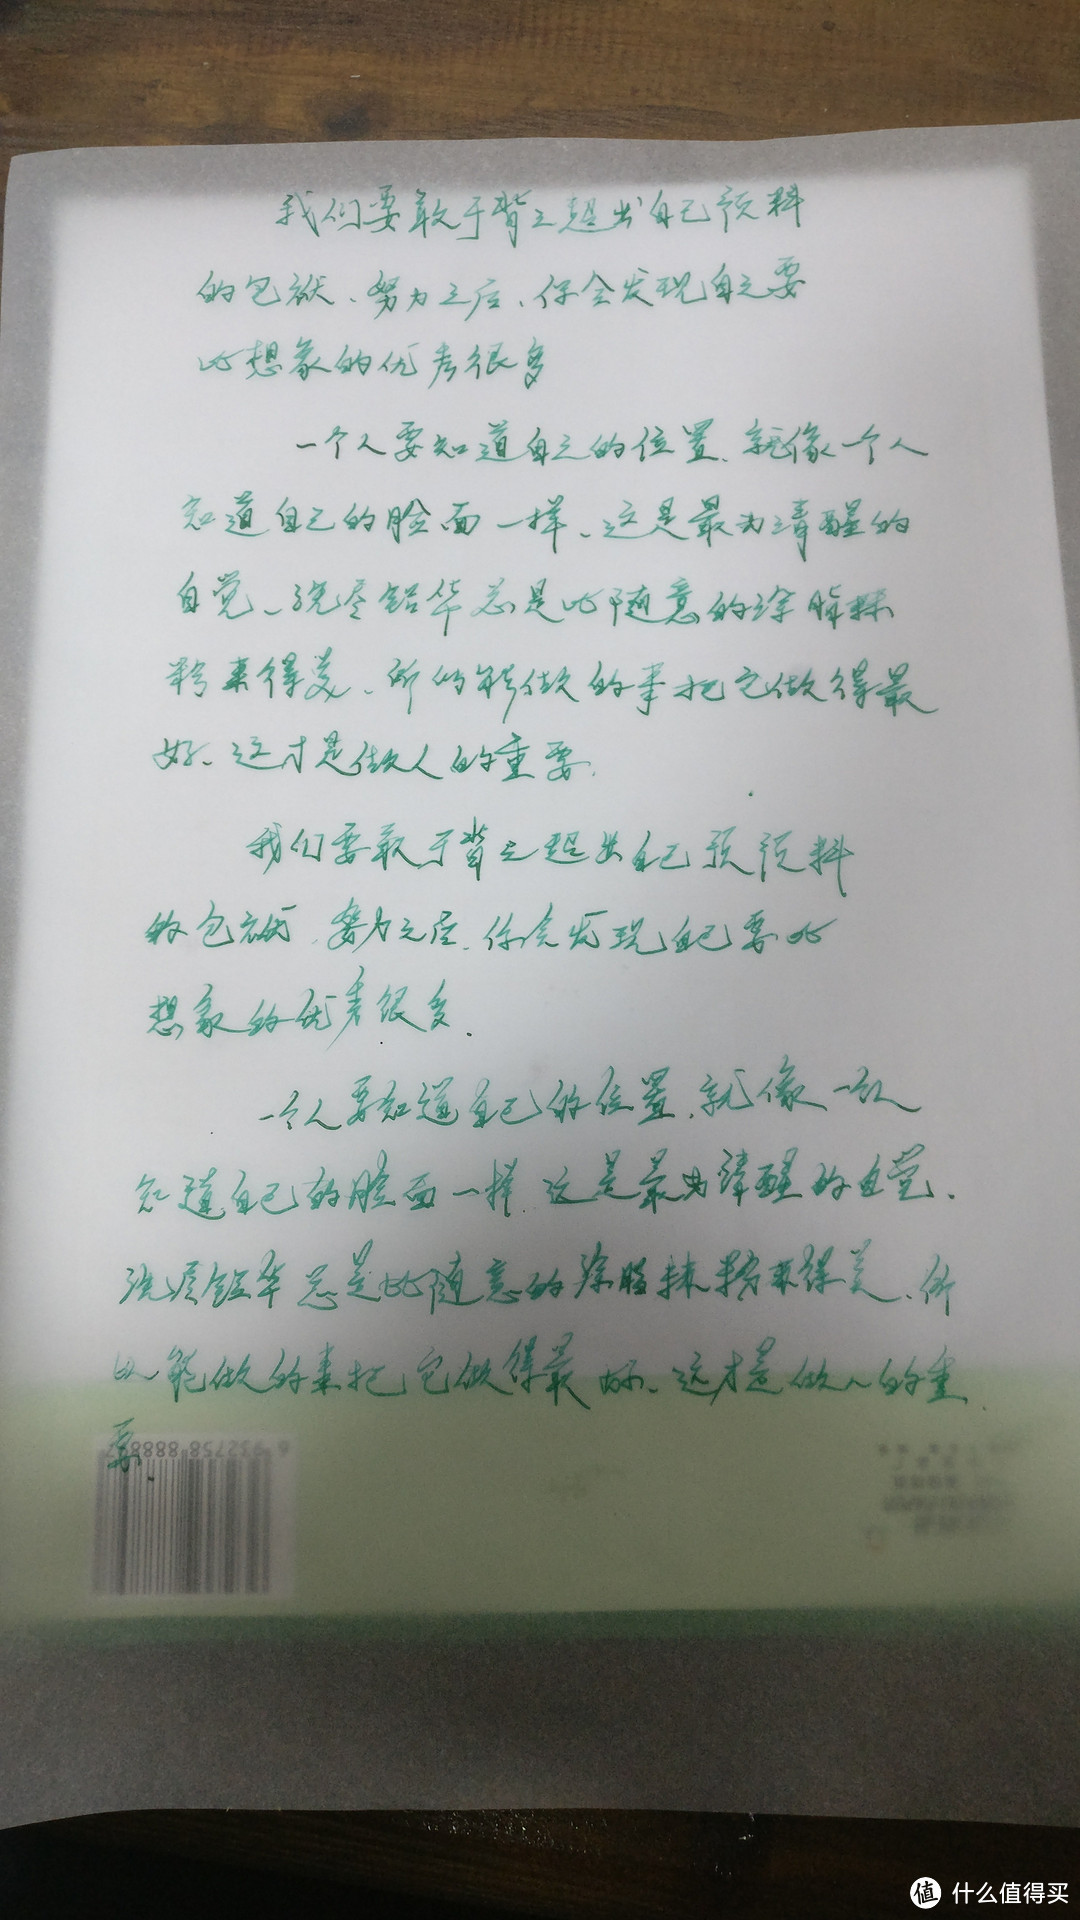 我们要敢于背上超出自己预料
的包袱、努力之后、你会发现自己要
比想象的优秀很多
一个人要知道自己的位置、就像一个人
知道自己的脸面一样、这是最为清醒的
自觉、洗尽铅华总是比随意的涂脂抹
粉来得美、所以能做的事把它做得最
好、这才是做人的重要.
我们要敢于背上超出自己预预料
的包袱、努力之后、你会发现自己要比
想象的优秀很多.
一个人要知道自己的位置、就像一个人
知道自己的脸面一样、这是最为清醒的自觉、
洗尽铅华总是比随意的涂脂抹粉来得美、所
以能做的事把它做得最好、这才是做人的重
要.
值 什么值得买